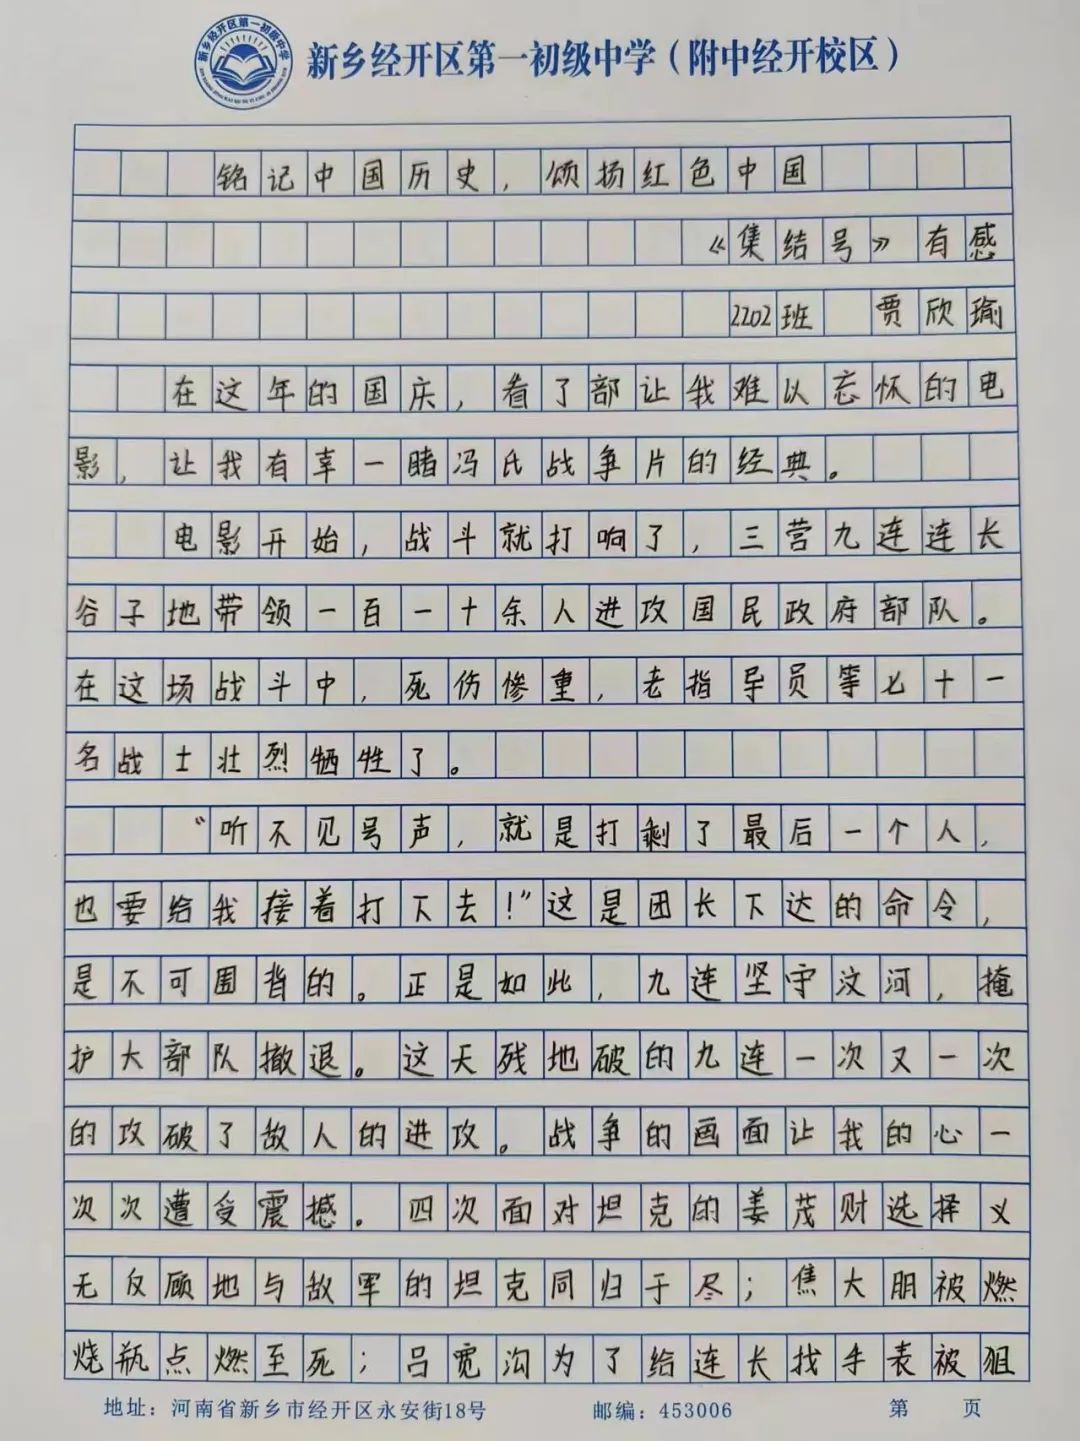 新乡经开区第一初级中学
新乡经开区第一初级中学（附中经开校区）
铭记中国历史，颂扬红色中国
《集结号》有感
2202班 贾欣瑜
在这年的国庆，看了部让我难以忘怀的电
影，让我有幸一睹冯氏战争片的经典。
电影开始，战斗就打响了，三营九连连长
谷子地带领一百一十余人进攻国民政府部队。
在这场战斗中，死伤惨重，老指导员等七十一
名战士壮烈牺牲了。
“听不见号声，就是打剩了最后一个人，
也要给我接着打下去！”这是团长下达的命令，
是不可围背的。正是如此，九连坚守汶河，掩
护大部队撤退。这天残地破的九连一次又一次
的攻破了敌人的进攻。战争的画面让我的心一
次次遭受震撼。四次面对坦克的姜茂财选择义
无反顾地与敌军的坦克同归于尽；焦大朋被燃
烧瓶点燃至死；吕宽沟为了给连长找手表被狙
地址：河南省新乡市经开区永安街18号 邮编：453006 第 页